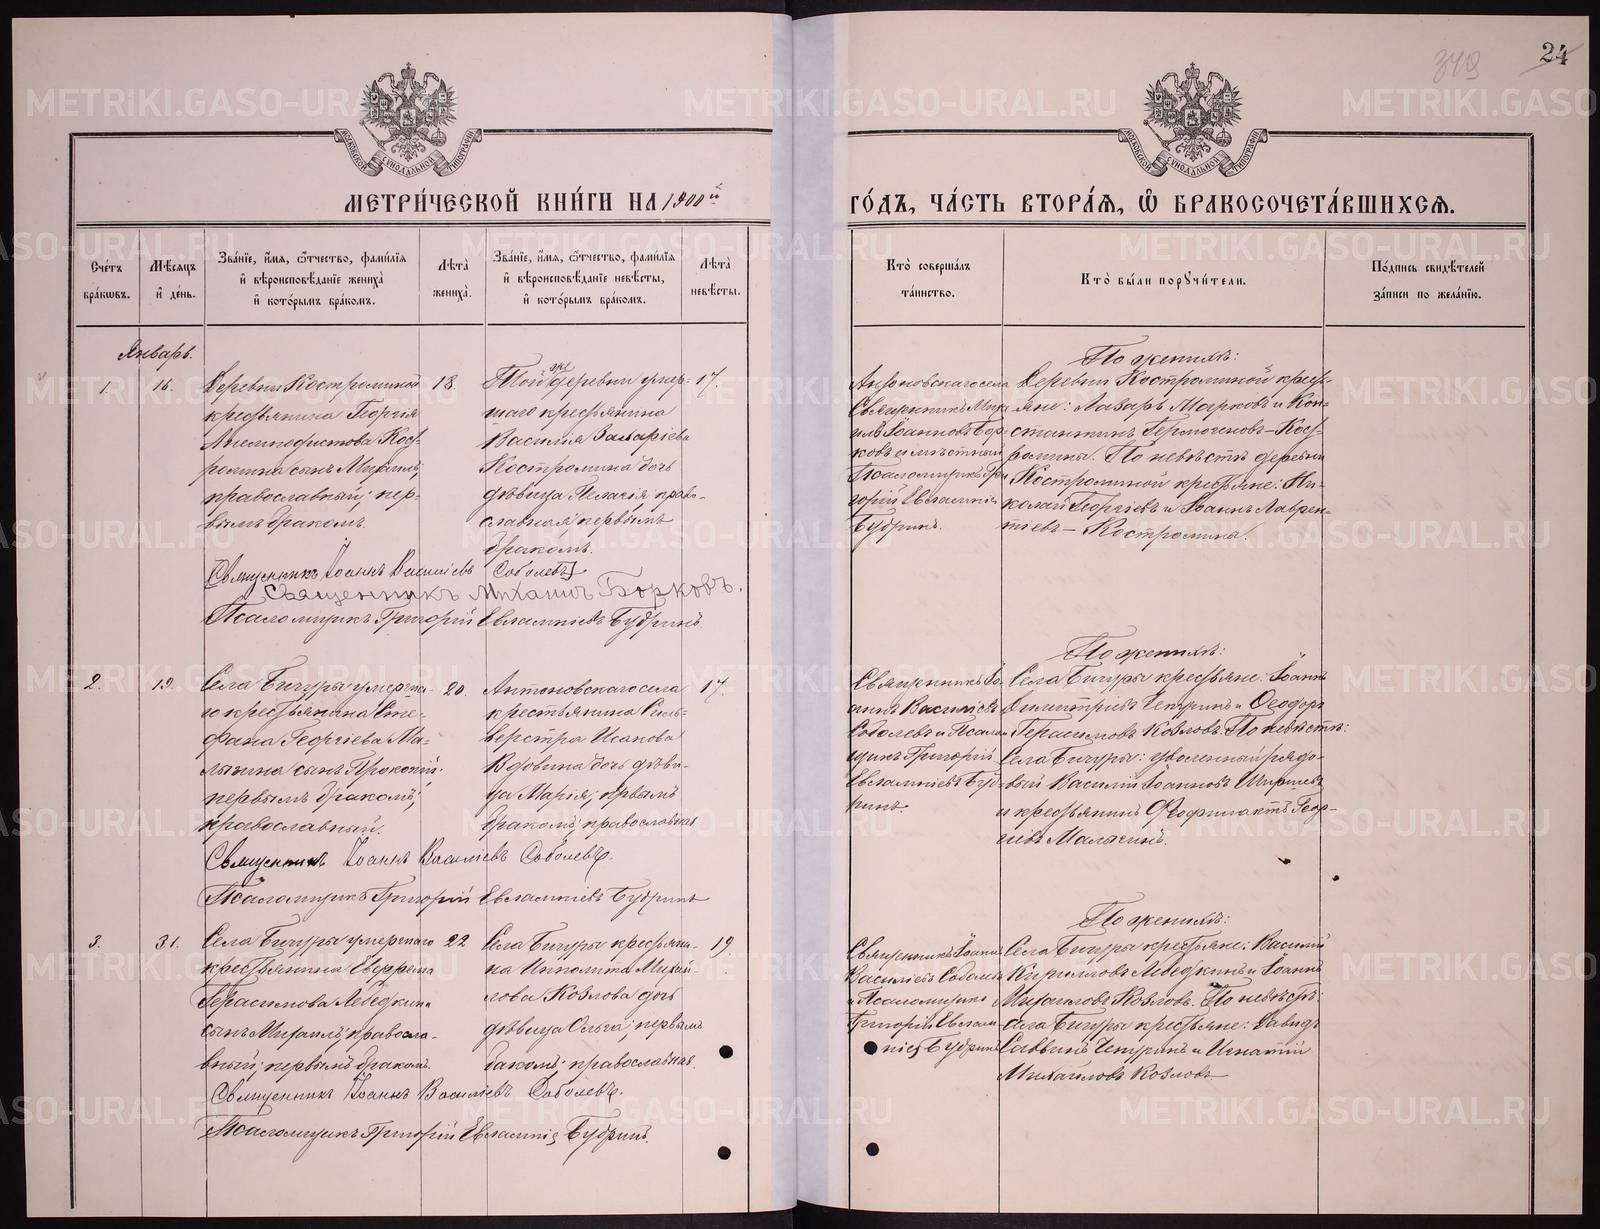 349
24
МОСКОВСКОЙ СѴНОДАЛЬНОЙ ТИПОГРАФІИ
МОСКОВСКОЙ СѴНОДАЛЬНОЙ ТИПОГРАФІИ
МЕТРИ́ЧЕСКОЙ КНИ́ГИ НА 1900й
ГО́ДЪ, ЧА́СТЬ ВТОРА́Ѧ, Ѽ БРАКОСОЧЕТА́ВШИХСѦ.
Сче́тъ бра́кѡвъ.
Мѣ́сѧцъ и҆ де́нь.
Зва́нїе, и҆́мѧ, ѻ҆́тчество, фами́лїѧ и҆ вѣроисповѣ́данїе жениха̀ и҆ кото́рымъ бра́комъ.
Лѣ́та жениха̀.
Зва́нїе, и҆́мѧ, ѻ҆́тчество, фами́лїѧ и҆ вѣроисповѣ́данїе невѣ́сты, и҆ кото́рымъ бра́комъ.
Лѣ́та невѣ́сты.
Кто̀ соверша́лъ та́инство.
Кто̀ бы́ли порꙋчи́тели.
По́дпись свидѣ́телей за́писи по жела́нїю.
Январь.
1.
16.
Деревни Костроминой
крестьянина Георгія
Костромина сынъ Михаилъ;
православный; пер-
вымъ бракомъ.
18.
Той же деревни умер-
шаго крестьянина
Василія Захаріева
Костромина дочь
дѣвица Пелагія; право-
славная; первымъ
бракомъ.
17.
Антоновскаго села
Священникъ Миха
илъ Іоанновъ Бор
ковъ и мѣстный
Псаломщикъ Гри
горій Евлампіевъ
Будринъ.
По женихѣ:
Деревни Костроминой кресть-
яне: Лазарь Марковъ и Кон-
стантинъ Гермогеновъ – Кост-
ромины. По невѣстѣ деревни
Костроминой крестьяне: Ни-
колай Георгіевъ и Іоаннъ Лаврен-
тіевъ – Костромины.
[Священникъ Іоаннъ Василіевъ Соболевъ]
Священникъ Михаилъ Борковъ.
Псаломщикъ Григорій Евлампіевъ Будринъ.
2.
19.
Села Бичуры умерша-
го крестьянина Сте-
фана Георгіева Ма-
лыгина сынъ Прокопій;
первымъ бракомъ;
православный.
20.
Антоновскаго села
крестьянина Силь-
верстра Исакова
Вдовина дочь дѣви-
ца Марія; првымъ
бракомъ; православная
17.
Священникъ Іо-
аннъ Василіевъ
Соболевъ и Псалом
щикъ Григорій
Евлампіевъ Буд-
ринъ.
По женихѣ:
Села Бичуры крестьяне: Іоаннъ
Димитріевъ Чепуринъ и Ѳеодоръ
Герасимовъ Козловъ. По невѣстѣ:
Села Бичуры: уволенный рядо-
вой Василій Іоанновъ
и крестьянинъ Ѳеофилактъ Геор-
гіевъ Малыгинъ.
Священникъ Іоаннъ Василіевъ Соболевъ.
Псаломщикъ Григорій Евлампіевъ Будринъ
3.
31.
Села Бичуры умершаго
крестьянина Евфрема
Герасимова Лебедкина
сынъ Михаилъ; правосла-
вный; первымъ бракомъ.
22
Села Бичуры крестьяни-
на Ипполита Михай-
лова Козлова дочь
дѣвица Ольга; первымъ
бакомъ; православная.
19.
Священникъ Іоаннъ
Василіевъ Соболевъ
и Псаломщикъ
Григорій Евлам-
піев Будринъ
По женихѣ:
Села Бичуры крестьяне: Василій
Кирилловъ Лебедкинъ и Іоаннъ
Михаиловъ Козловъ. По невѣстѣ:
села Бичуры крестьяне: Давидъ
Саввинъ Чепуринъ и Игнатій
Михаиловъ Козловъ.
Священникъ Іоаннъ Василіевъ Соболевъ.
Псаломщикъ Григорій Евлампіев Будринъ.
METRIKI.GASO-URAL.RU